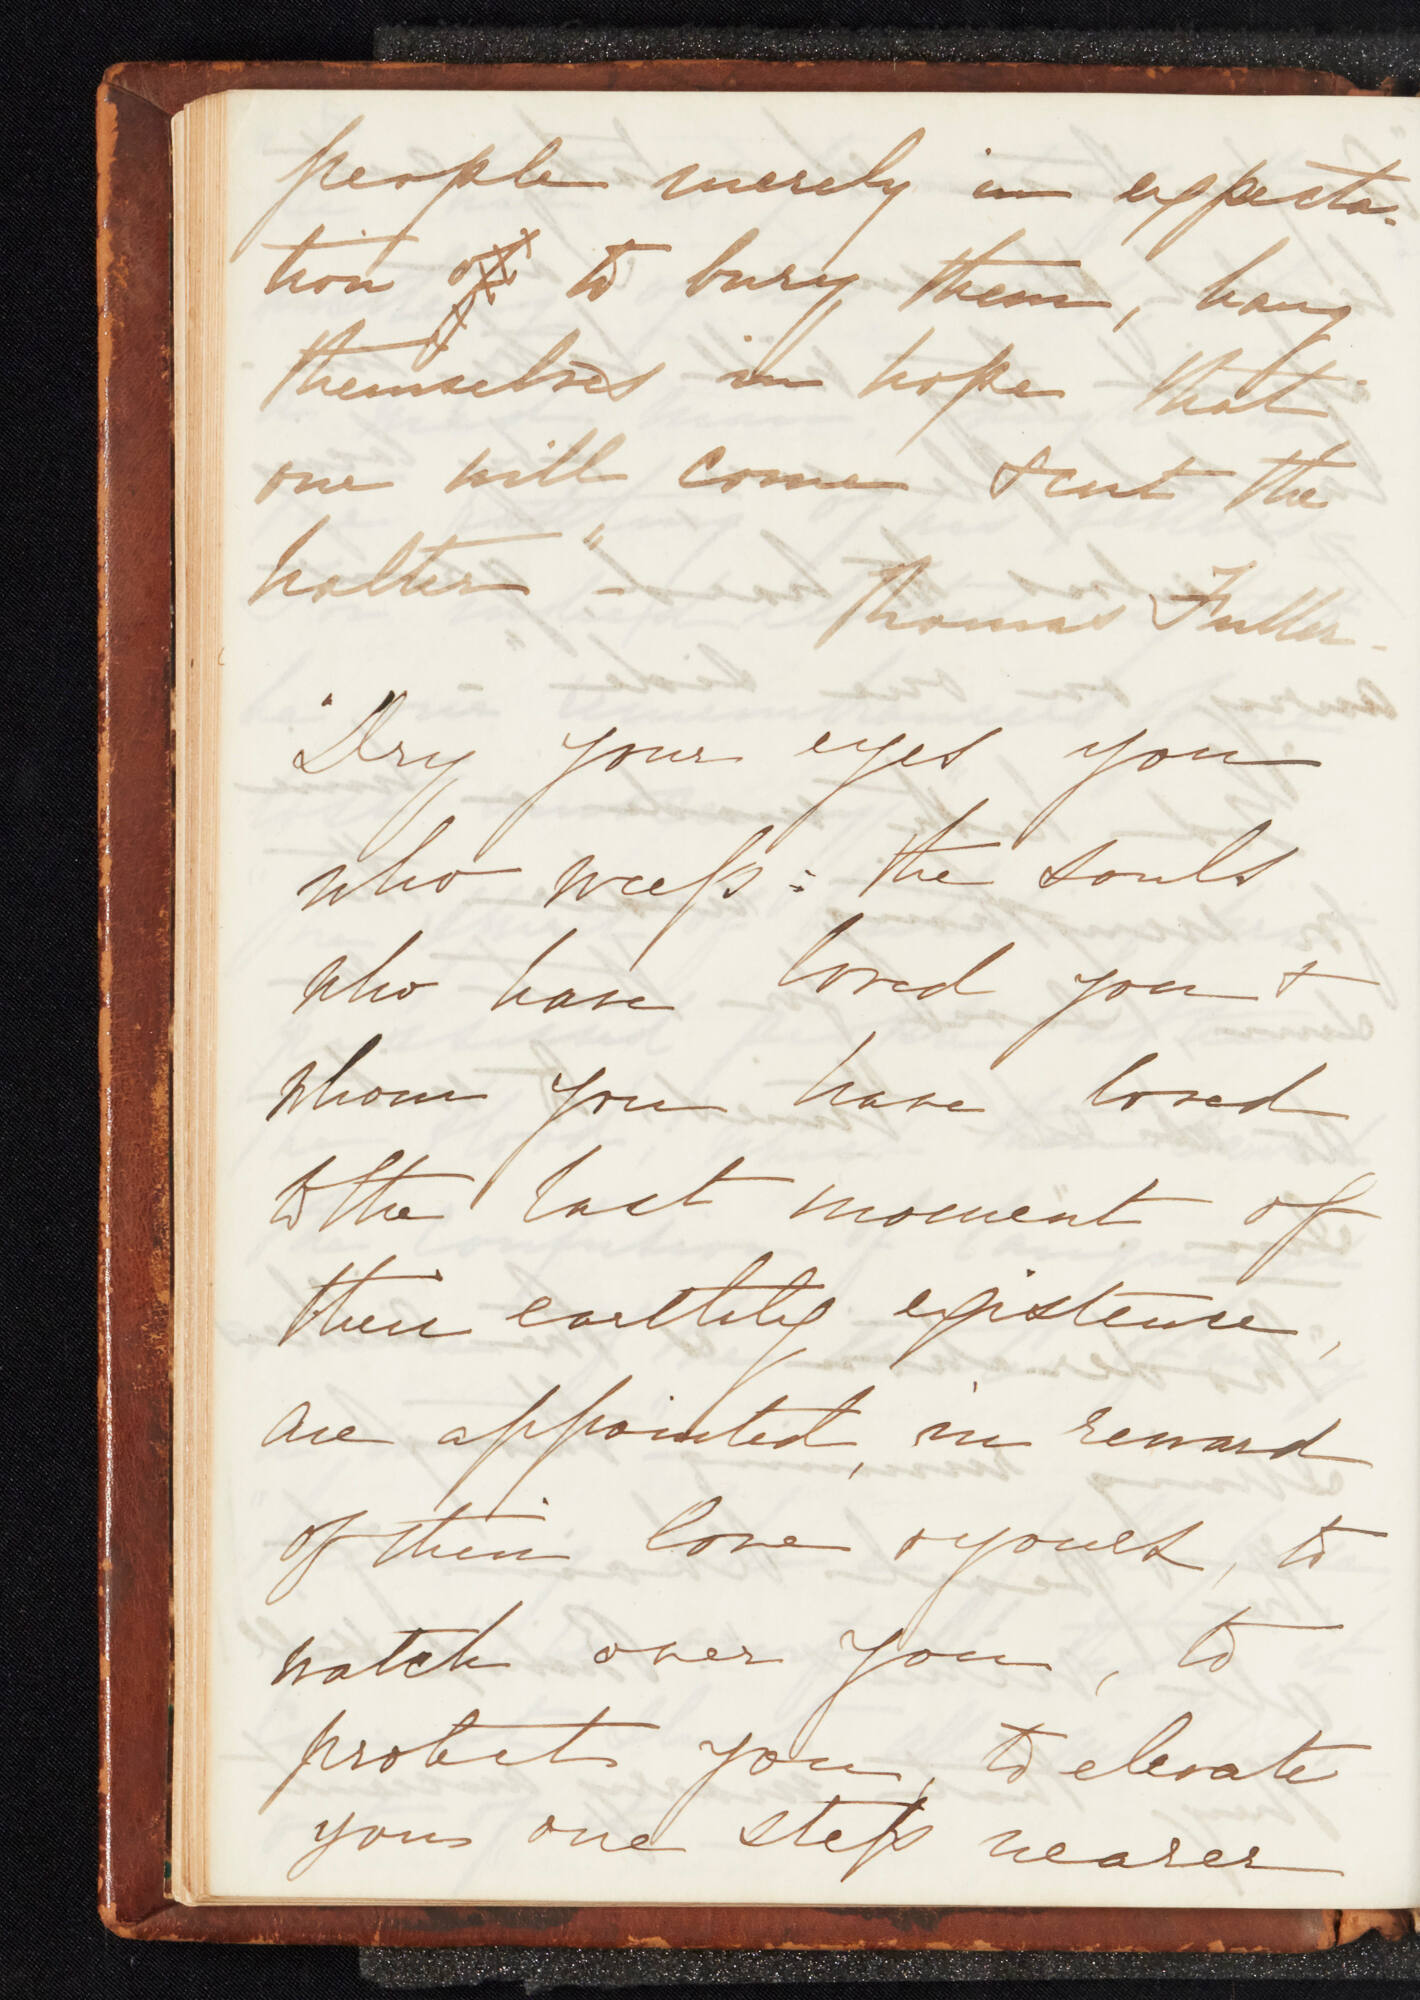 people merely in expecta-
tion of to bury them, hang
themselves in hope that
one will come & cut the
halter" - Thomas Fuller -
"Dry your eyes you
who weep: the souls
who have loved you &
whom you have loved
to the last moment of
their earthly existence,
are appointed, in reward
of their love & yours, to
watch over you, to
protect you, to elevate
you one step nearer